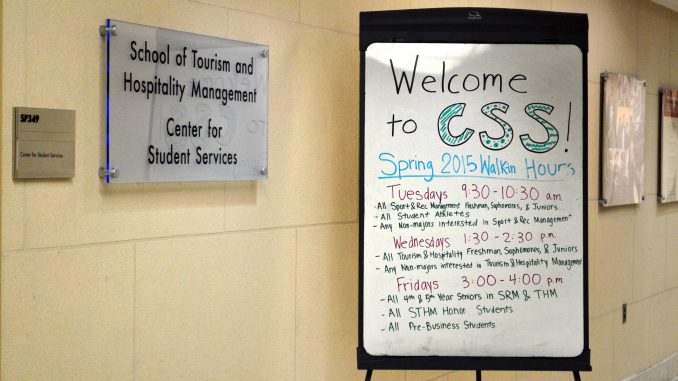 SP349
Center for Student Services
School of Tourism and
Hospitality Management
Center for
Student Services
Welcome
to CSS!
Spring 2015 Walkin Hours
Tuesdays 9:30-10:30 a.m.
- All Sport & Rec Management Freshman, Sophomores, & Juniors
- All Student Athletes
- Any Non-majors interested in Sport & Rec Management
Wednesdays 1:30 - 2:30 p.m.
- All Tourism & Hospitality Freshman, Sophomores, & Juniors
- Any Non-majors interested in Tourism & Hospitality Management
Fridays 3:00 - 4:00 p.m
- All 4th & 5th Year Seniors in SRM & THM
- All STHM Honor Students
- All Pre-Business Students